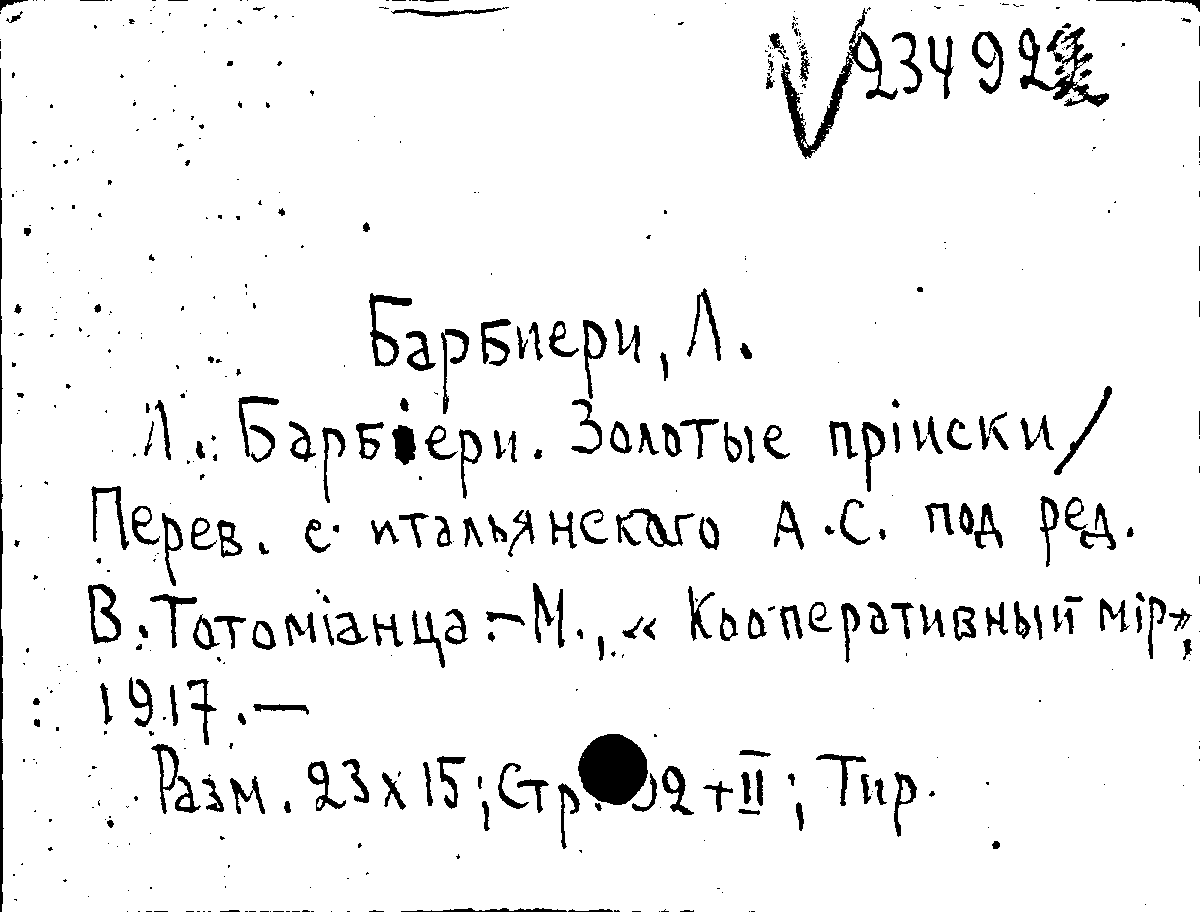 23492
Барбиери, Л.
Л. Барбіери. Золотые пріиски/
Перев. с итальянского А.С. под ред.
В. Тотоміанца.—М., « Кооперативный мір»,
1917.—
Разм. 23х15; Стр. +II; Тир.